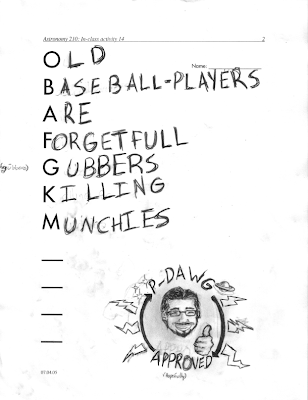 Astronomy 210: In-class activity 14 2
Name:
OLD
BASEBALL-PLAYERS
ARE
FORGETFULL
GUBBERS
KILLING
MUNCHIES
P-DAWG
APPROVED
(Hopefully)
07.04.05